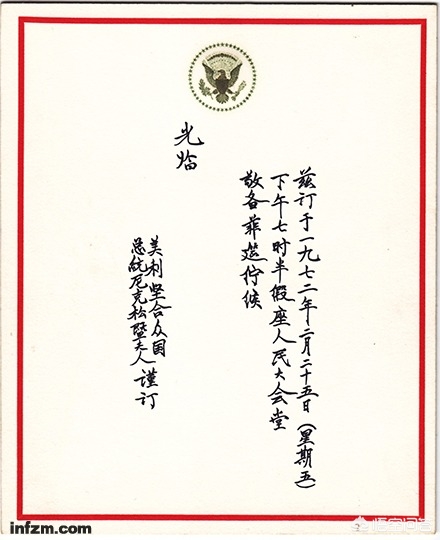 兹订于一九七二年二月二十五日（星期五）
下午七时半假座人民大会堂
敬备菲筵伫候
光临
美利坚合众国
总統尼克松暨夫人谨订
infzm.com